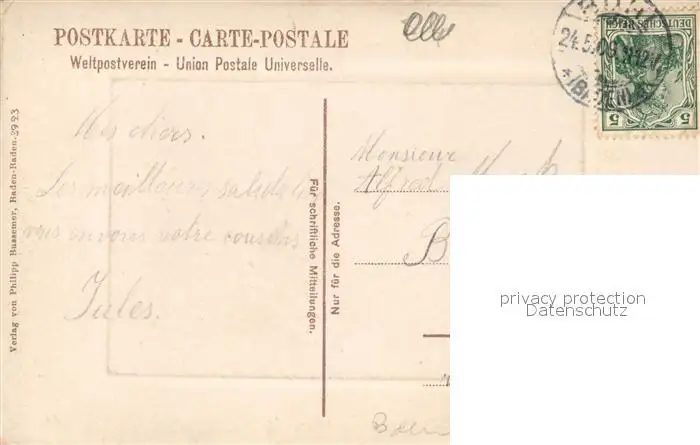 POSTKARTE - CARTE-POSTALE
Weltpostverein - Union Postale Universelle.
24.5.06
DEUTSCHES REICH
5 5
Verlag von Philipp Bussemer, Baden-Baden. 2923
Mes chers.
Les meilleures
vous envoie votre cousin
Jules.
Für schriftliche Mitteilungen.
Nur für die Adresse.
Monsieur
Alfred
B
privacy protection
Datenschutz